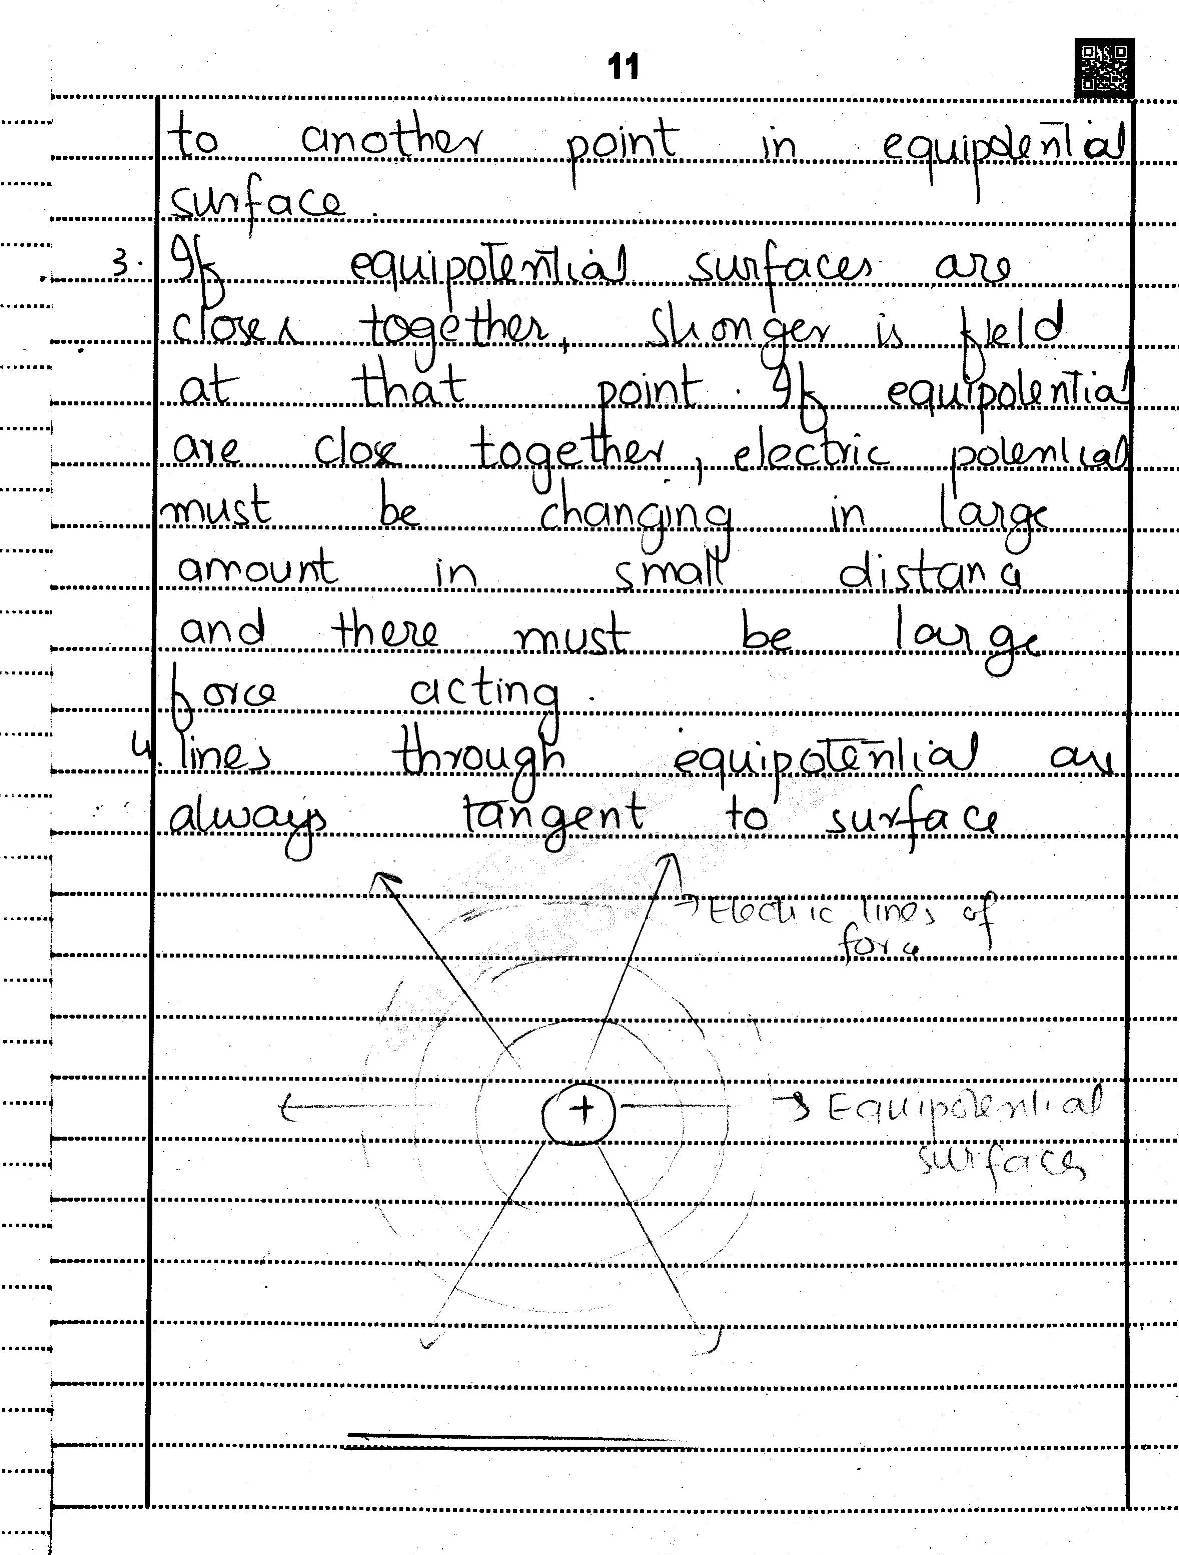 11
to another point in equipotential
surface.
3. If equipotential surfaces are
closer together, stronger is field
at that point. If equipotential
are close together, electric potential
must be changing in large
amount in small distance
and there must be large
force acting.
4. lines through equipotential are
always tangent to surface
→ Electric lines of
force
+
→ Equipotential
surfaces